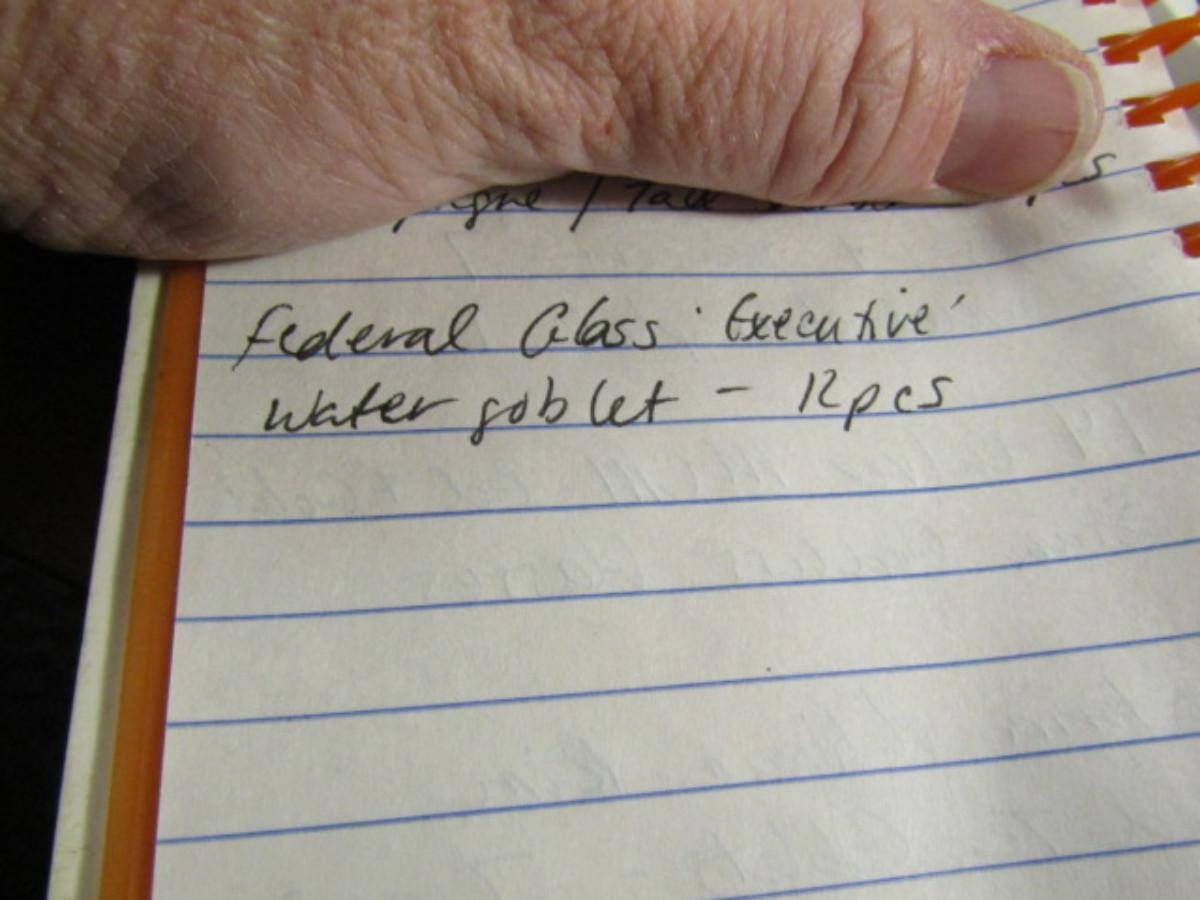 / Tall
Federal Glass 'Executive'
Water goblet - 12pcs